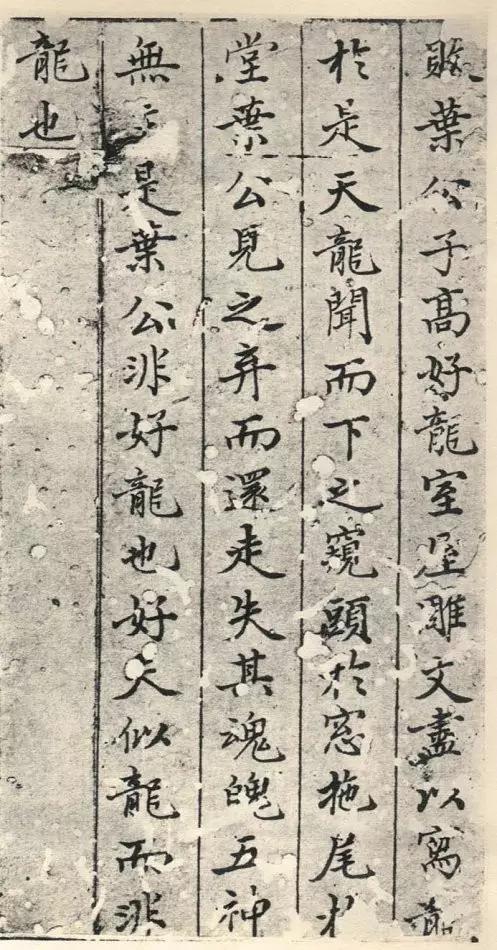 葉公子高好龍室屋雕文盡以寫
於是天龍聞而下之窺頭於窓拖尾於
堂葉公見之弃而還走失其魂魄五神
無是葉公非好龍也好夫似龍而非
龍也